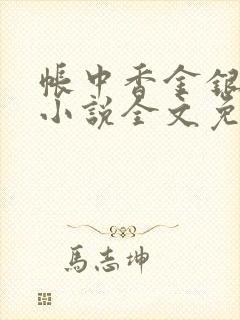 帳中香金銀
小說全文免
馬志坤